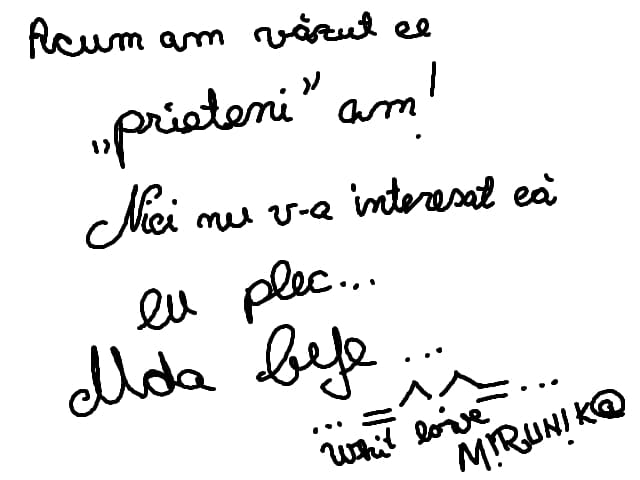 Acum am văzut ce
„prieteni” am!
Nici nu v-a interesat că
eu plec...
Mda bye ...
... =^^= ...
Whit love
M!RUN!K@